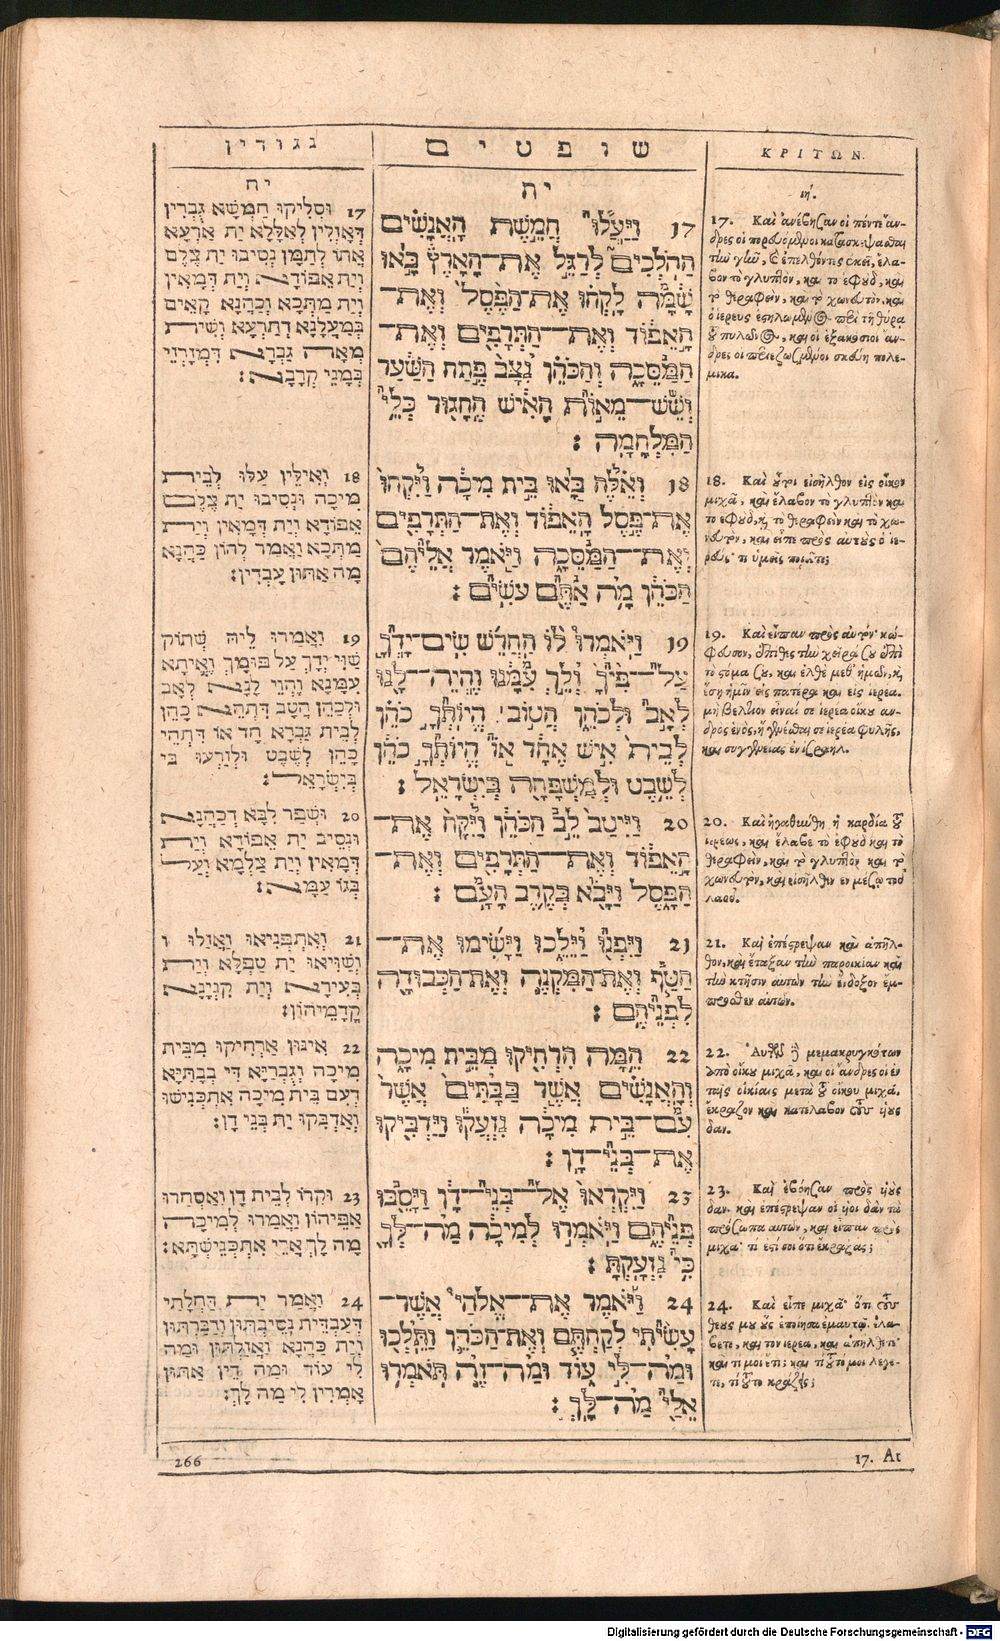 נגודין
יח
17 וּסְלִיקוּ חַמְשָׁא גֻבְרִין
דְּאָזְלִין לְאַלָּלָא יַת אַרְעָא
אֲתוֹ לְתַמָּן נְסִיבוּ יַת צֶלֶם
וְיַת אֵפוֹדָא וְיַת דְּמָאִין
וְיַת מַתְּכָא וְכַהֲנָא קָאֵים
בְּמַעֲלָנָא דְתַרְעָא וְשִׁית
מְאָה גַבְרָא דִּמְזָרְזֵי
בְּמָנֵי קְרָבָא:
18 וְאִילֵּין עַלּוּ לְבֵית
מִיכָה וּנְסִיבוּ יַת צֶלֶם
אֵפוֹדָא וְיַת דְּמָאִין וְיַת
מַתְּכָא וַאֲמַר לְהוֹן כַּהֲנָא
מָה אַתּוּן עָבְדִין:
19 וַאֲמַרוּ לֵיהּ שְׁתוֹק
שַׁוִּי יְדָךְ עַל פּוּמָךְ וְאֵיתָא
עִמָּנָא וֶהֱוֵי לָנָא לְאַב
וּלְכַהֵן הֲטָב דִּתְהֵא כָהֵן
לְבֵית גַּבְרָא חַד אוֹ דִּתְהֵי
כָהֵן לְשִׁבְט וּלְזַרְעוּ בִּי
בְיִשְׂרָאֵל:
20 וּשְׁפַר לִבָּא דְכַהֲנָא
וּנְסֵיב יַת אֵפוֹדָא וְיַת
דְּמָאִין וְיַת צַלְמָא וְעַל
בְּגוֹ עַמָּא:
21 וְאִתְפְּנִיאוּ וַאֲזַלוּ ו
וְשַׁוִּיאוּ יַת טַפְלָא וְיַת
בְּעִירָא וְיַת קִנְיָנָא
קֳדָמֵיהוֹן:
22 אִינוּן אַרְחִיקוּ מִבֵּית
מִיכָה וְגֻבְרַיָּא דִּי בְּבָתַּיָּא
דְעִם בֵּית מִיכָה אִתְכְּנִישׁוּ
וְאַדְבָּקוּ יַת בְּנֵי דָן:
23 וּקְרוֹ לְבֵית דָּן וְאַסְחַרוּ
אַפֵּיהוֹן וַאֲמַרוּ לְמִיכָה
מָה לָךְ אֲרֵי אִתְכְּנֵישְׁתָּא:
24 וַאֲמַר יַת דַּחַלְתִּי
דְּעַבְדֵית נְסֵיבְתּוּן וַדְבַרְתּוּן
וְיַת כַּהֲנָא וַאֲזַלְתּוּן וּמָה
לִי עוֹד וּמָה דֵין אַתּוּן
אָמְרִין לִי מַה לָךְ:
266
שופטים
יח
17 וַיַּעֲלוּ חֲמֵשֶׁת הָאֲנָשִׁים
הַהֹלְכִים לְרַגֵּל אֶת־הָאָרֶץ בָּאוּ
שָׁמָּה לָקְחוּ אֶת־הַפֶּסֶל וְאֶת־
הָאֵפוֹד וְאֶת־הַתְּרָפִים וְאֶת־
הַמַּסֵּכָה וְהַכֹּהֵן נִצָּב פֶּתַח הַשַּׁעַר
וְשֵׁשׁ־מֵאוֹת הָאִישׁ הֶחָגוּר כְּלֵי
הַמִּלְחָמָה:
18 וְאֵלֶּה בָּאוּ בֵּית מִיכָה וַיִּקְחוּ
אֶת־פֶּסֶל הָאֵפוֹד וְאֶת־הַתְּרָפִים
וְאֶת־הַמַּסֵּכָה וַיֹּאמֶר אֲלֵיהֶם
הַכֹּהֵן מָה אַתֶּם עֹשִׂים:
19 וַיֹּאמְרוּ לוֹ הַחֲרֵשׁ שִׂים־יָדְךָ
עַל־פִּיךָ וְלֵךְ עִמָּנוּ וֶהְיֵה־לָנוּ
לְאָב וּלְכֹהֵן הֲטוֹב ׀ הֱיוֹתְךָ כֹהֵן
לְבֵית אִישׁ אֶחָד אוֹ הֱיוֹתְךָ כֹהֵן
לְשֵׁבֶט וּלְמִשְׁפָּחָה בְּיִשְׂרָאֵל:
20 וַיִּיטַב לֵב הַכֹּהֵן וַיִּקַּח אֶת־
הָאֵפוֹד וְאֶת־הַתְּרָפִים וְאֶת־
הַפָּסֶל וַיָּבֹא בְּקֶרֶב הָעָם:
21 וַיִּפְנוּ וַיֵּלֵכוּ וַיָּשִׂימוּ אֶת־
הַטַּף וְאֶת־הַמִּקְנֶה וְאֶת־הַכְּבוּדָּה
לִפְנֵיהֶם:
22 הֵמָּה הִרְחִיקוּ מִבֵּית מִיכָה
וְהָאֲנָשִׁים אֲשֶׁר בַּבָּתִּים אֲשֶׁר
עִם־בֵּית מִיכָה נִזְעֲקוּ וַיַּדְבִּיקוּ
אֶת־בְּנֵי־דָן:
23 וַיִּקְרְאוּ אֶל־בְּנֵי־דָן וַיַּסֵּבּוּ
פְּנֵיהֶם וַיֹּאמְרוּ לְמִיכָה מַה־לְּךָ
כִּי נִזְעָקְתָּ:
24 וַיֹּאמֶר אֶת־אֱלֹהַי אֲשֶׁר־
עָשִׂיתִי לְקַחְתֶּם וְאֶת־הַכֹּהֵן וַתֵּלְכוּ
וּמַה־לִּי עוֹד וּמַה־זֶּה תֹּאמְרוּ
אֵלַי מַה־לָּךְ:
ΚΡΙΤΩΝ.
ιή.
17. Καὶ ἀνέβησαν οἱ πέντε ἄν-
δρες οἱ πορευόμενοι κατασκέψασθαι
τὴν γῆν, καὶ ἐπελθόντες ἐκεῖ, ἔλα-
βον τὸ γλυπτὸν, καὶ τὸ ἐφοὺδ, καὶ
τὸ θεραφεὶν, καὶ τὸ χωνευτὸν. καὶ
ὁ ἱερεὺς ἐστηλωμένος παρὰ τῇ θύρᾳ
τοῦ πυλῶνος, καὶ οἱ ἑξακόσιοι ἄν-
δρες οἱ περιεζωσμένοι σκεύη πολε-
μικά.
18. Καὶ οὗτοι εἰσῆλθον εἰς οἶκον
μιχᾶ, καὶ ἔλαβον τὸ γλυπτὸν καὶ
τὸ ἐφοὺδ, καὶ τὸ θεραφεὶν καὶ τὸ χω-
νευτὸν, καὶ εἶπε πρὸς αὐτοὺς ὁ ἱε-
ρεύς· τί ὑμεῖς ποιεῖτε;
19. Καὶ εἶπαν πρὸς αὐτὸν· κώ-
φευσον, ἐπίθες τὴν χεῖρά σου ἐπὶ
τὸ στόμα σου, καὶ ἐλθὲ μεθ' ἡμῶν, καὶ
ἔσῃ ἡμῖν εἰς πατέρα καὶ εἰς ἱερέα.
μὴ βέλτιον εἶναί σε ἱερέα οἴκου ἀν-
δρὸς ἑνὸς, ἢ γενέσθαι σε ἱερέα φυλῆς,
καὶ συγγενείας ἐν ἰσραήλ.
20. Καὶ ἠγαθύνθη ἡ καρδία τοῦ
ἱερέως, καὶ ἔλαβε τὸ ἐφοὺδ καὶ τὸ
θεραφεὶν, καὶ τὸ γλυπτὸν καὶ τὸ
χωνευτὸν, καὶ εἰσῆλθεν ἐν μέσῳ τοῦ
λαοῦ.
21. Καὶ ἐπέστρεψαν καὶ ἀπῆλ-
θον, καὶ ἔταξαν τὴν παροικίαν καὶ
τὴν κτῆσιν αὐτῶν τὴν ἔνδοξον ἔμ-
προσθεν αὐτῶν.
22. Αὐτῶν δὲ μεμακρυγκότων
ἀπὸ οἴκου μιχᾶ, καὶ οἱ ἄνδρες οἱ ἐν
ταῖς οἰκίαις μετὰ τοῦ οἴκου μιχᾶ.
ἔκραζον καὶ κατέλαβον τοὺς υἱοὺς
δαν.
23. Καὶ ἐβόησαν πρὸς υἱοὺς
δὰν. καὶ ἐπέστρεψαν οἱ υἱοὶ δὰν τὰ
πρόσωπα αὐτῶν, καὶ εἶπαν πρὸς
μιχᾶ· τί ἐστί σοι ὅτι ἔκραξας;
24. Καὶ εἶπε μιχᾶ· ὅτι τοὺς
θεούς μου οὓς ἐποίησα ἐμαυτῷ ἐλά-
βετε, καὶ τὸν ἱερέα, καὶ ἀπήλθετε·
καὶ τί μοι ἔτι; καὶ τί τοῦτό μοι λέγε-
τε, τί τοῦτο κράζεις;
17. At
Digitalisierung gefördert durch die Deutsche Forschungsgemeinschaft - DFG